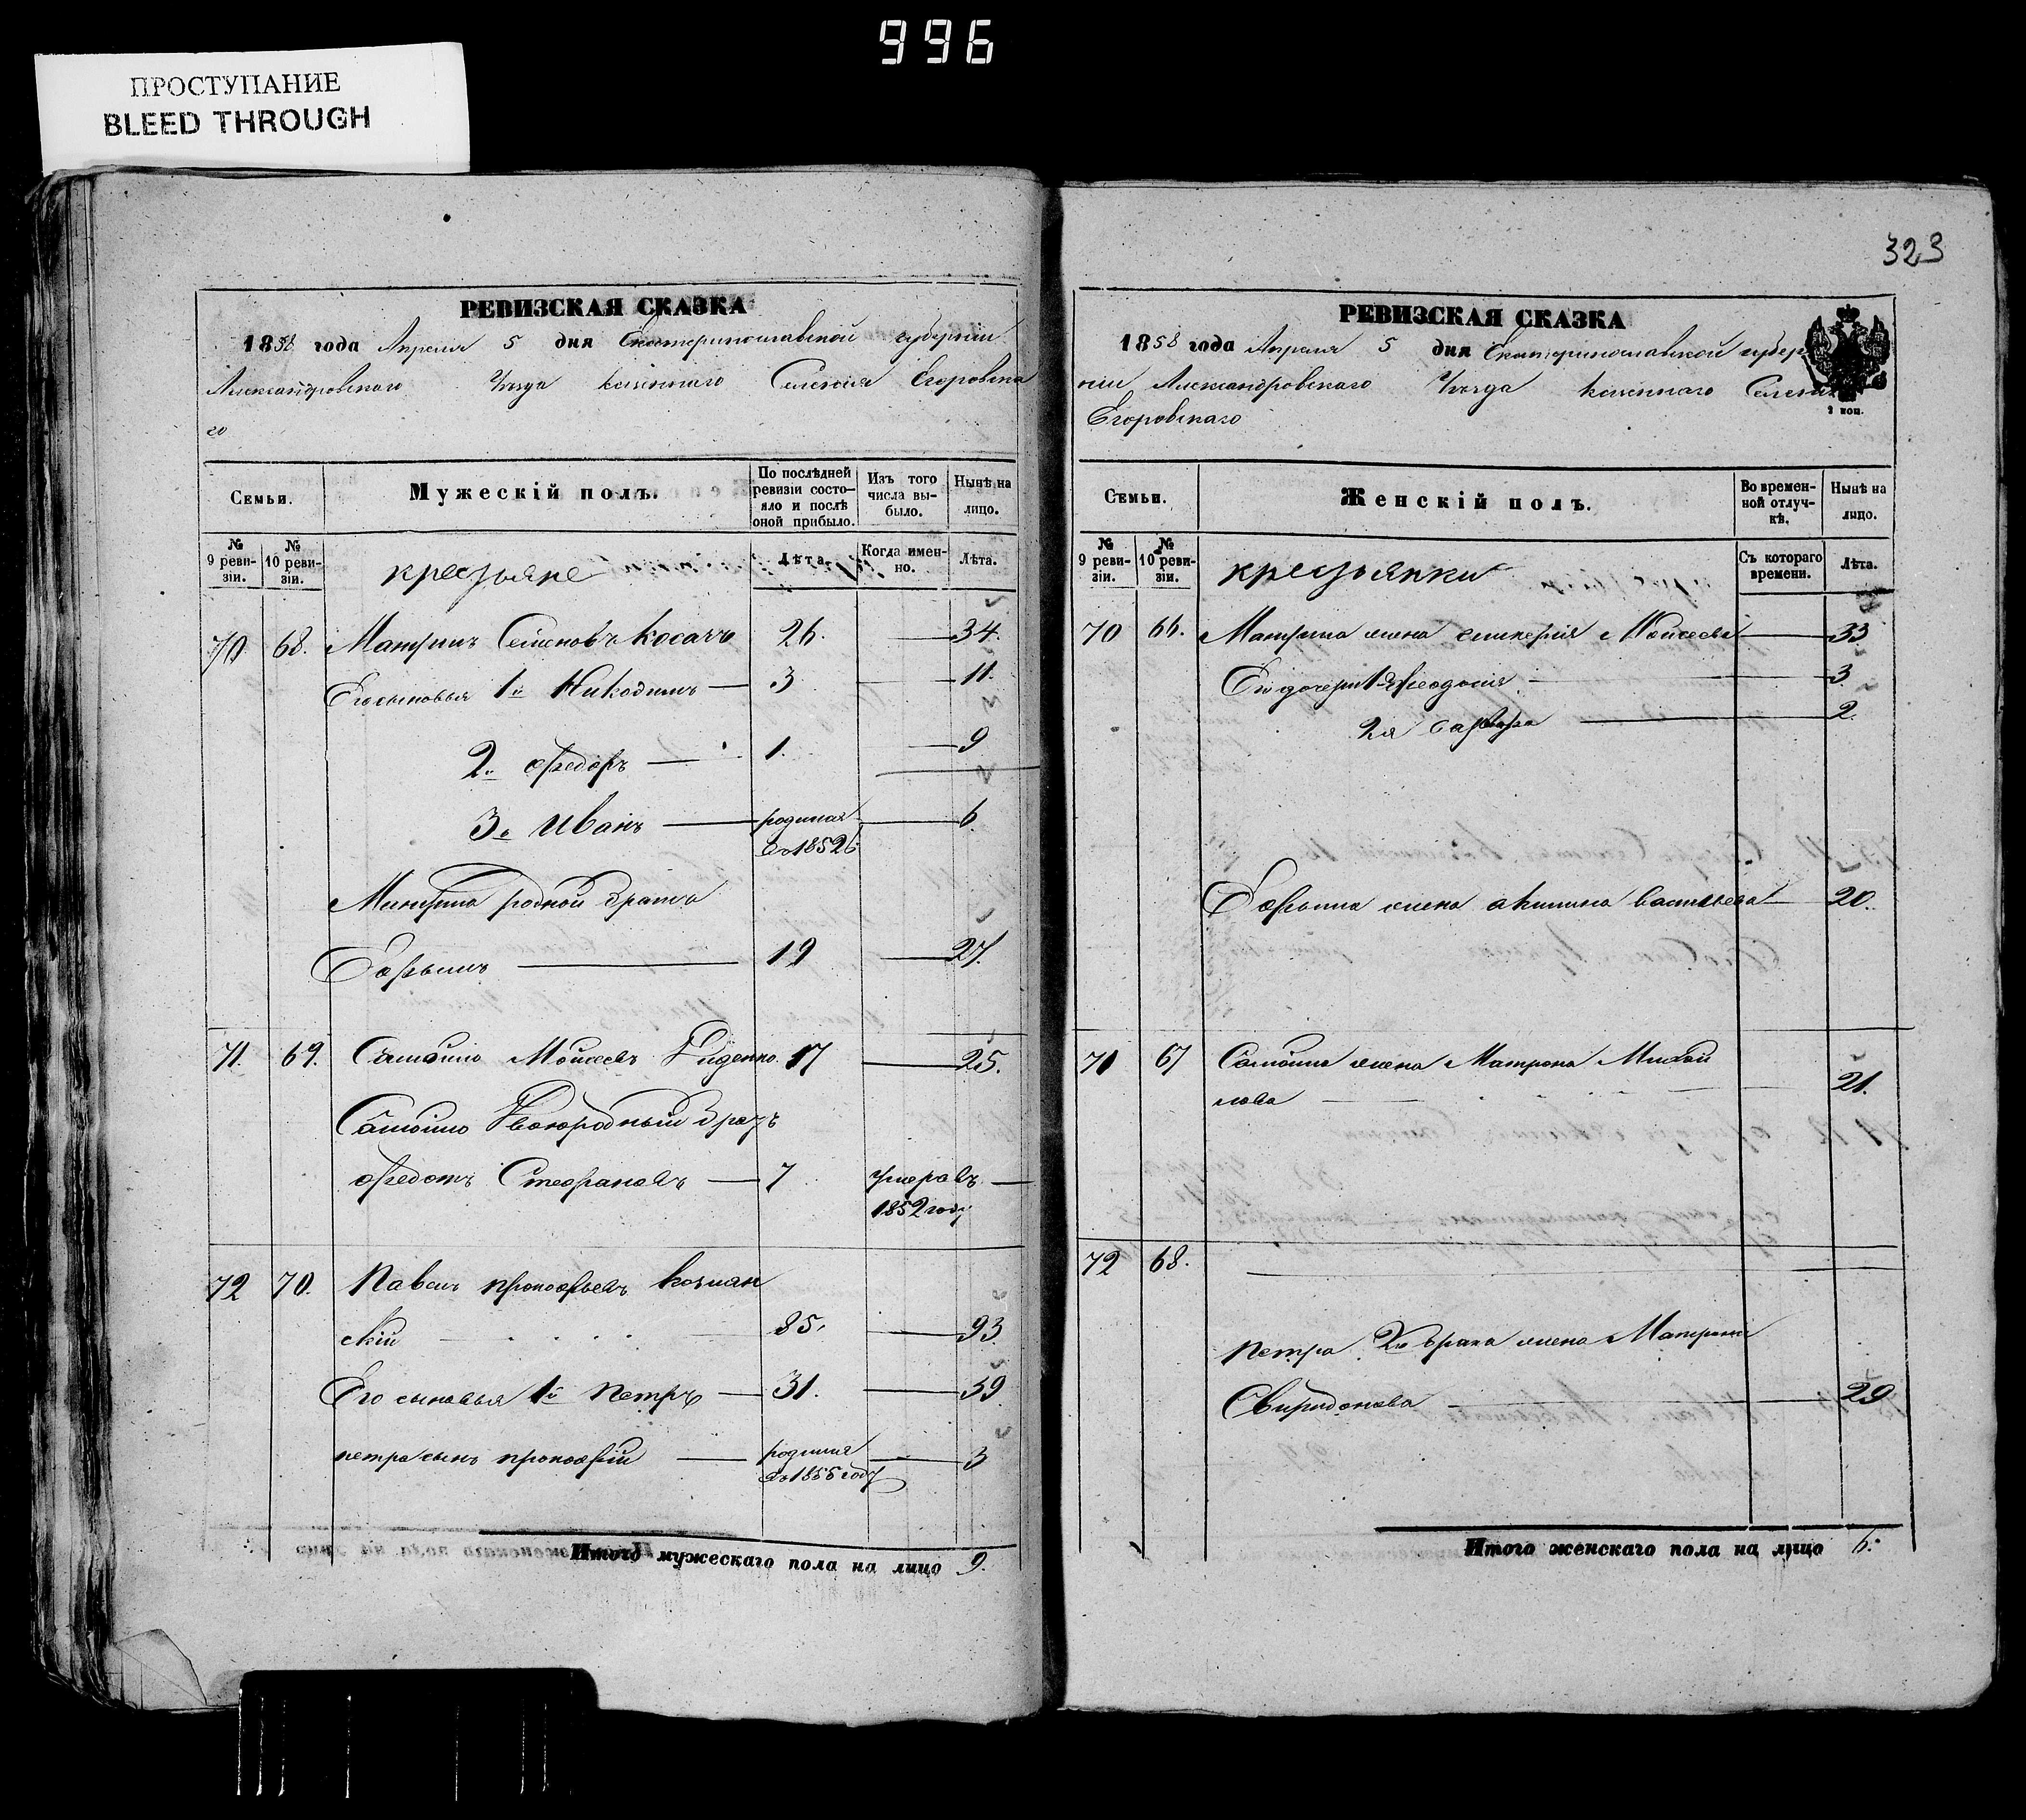 996
ПРОСТУПАНИЕ
BLEED THROUGH
РЕВИЗСКАЯ СКАЗКА
1858 года Апреля 5 дня Екатеринославской губернiи
Александровскаго Уѣзда казеннаго Селенiя Егоровска
го
Семьи.
Мужескiй полъ.
По послѣдней
ревизiи состо-
яло и послѣ
оной прибыло.
Изъ того
числа вы-
было.
Нынѣ на
лицо.
№
9 реви-
зiи.
№
10 реви-
зiи.
крестьяне
Лѣта.
Когда имен-
но.
Лѣта.
70 68. Семеновъ Косачъ 26. 34.
Его сыновья 1й Никодимъ 3 11.
2й Ѳедоръ 1. 9
3й Иванъ родился 6.
въ 1852
родной братъ
19 27.
71. 69. Самойло Моисеевъ 17 25.
Самойло Двоюродный братъ
Ѳедотъ Стефановъ 7 умеръ въ
1852 году
72 70. Павелъ Прокофьевъ
скiй 85. 93
Его сыновья 1й Петръ 31. 39
Петра сынъ Прокофiй родился 3
въ 1855 году
Итого мужескаго пола на лицо 9.
323
РЕВИЗСКАЯ СКАЗКА
1858 года Апреля 5 дня Екатеринославской губер
нiи Александровскаго Уѣзда казеннаго Селенiя
Егоровскаго
2 коп.
Семьи.
Женскiй полъ.
Во времен-
ной отлуч-
кѣ.
Нынѣ на
лицо.
№
9 реви-
зiи.
№
10 реви-
зiи.
крестьянки
Съ котораго
времени.
Лѣта.
70 66. жена Моисеева 33
Его дочери 1я Феодосiя 3.
2я Варвара 2.
жена Акилина Васильева 20.
71 67 Самойла жена Матрона Михай
лова 21.
72 68.
Петра 2го брака жена Матрона
Свиридонова 29
Итого женскаго пола на лицо 6.